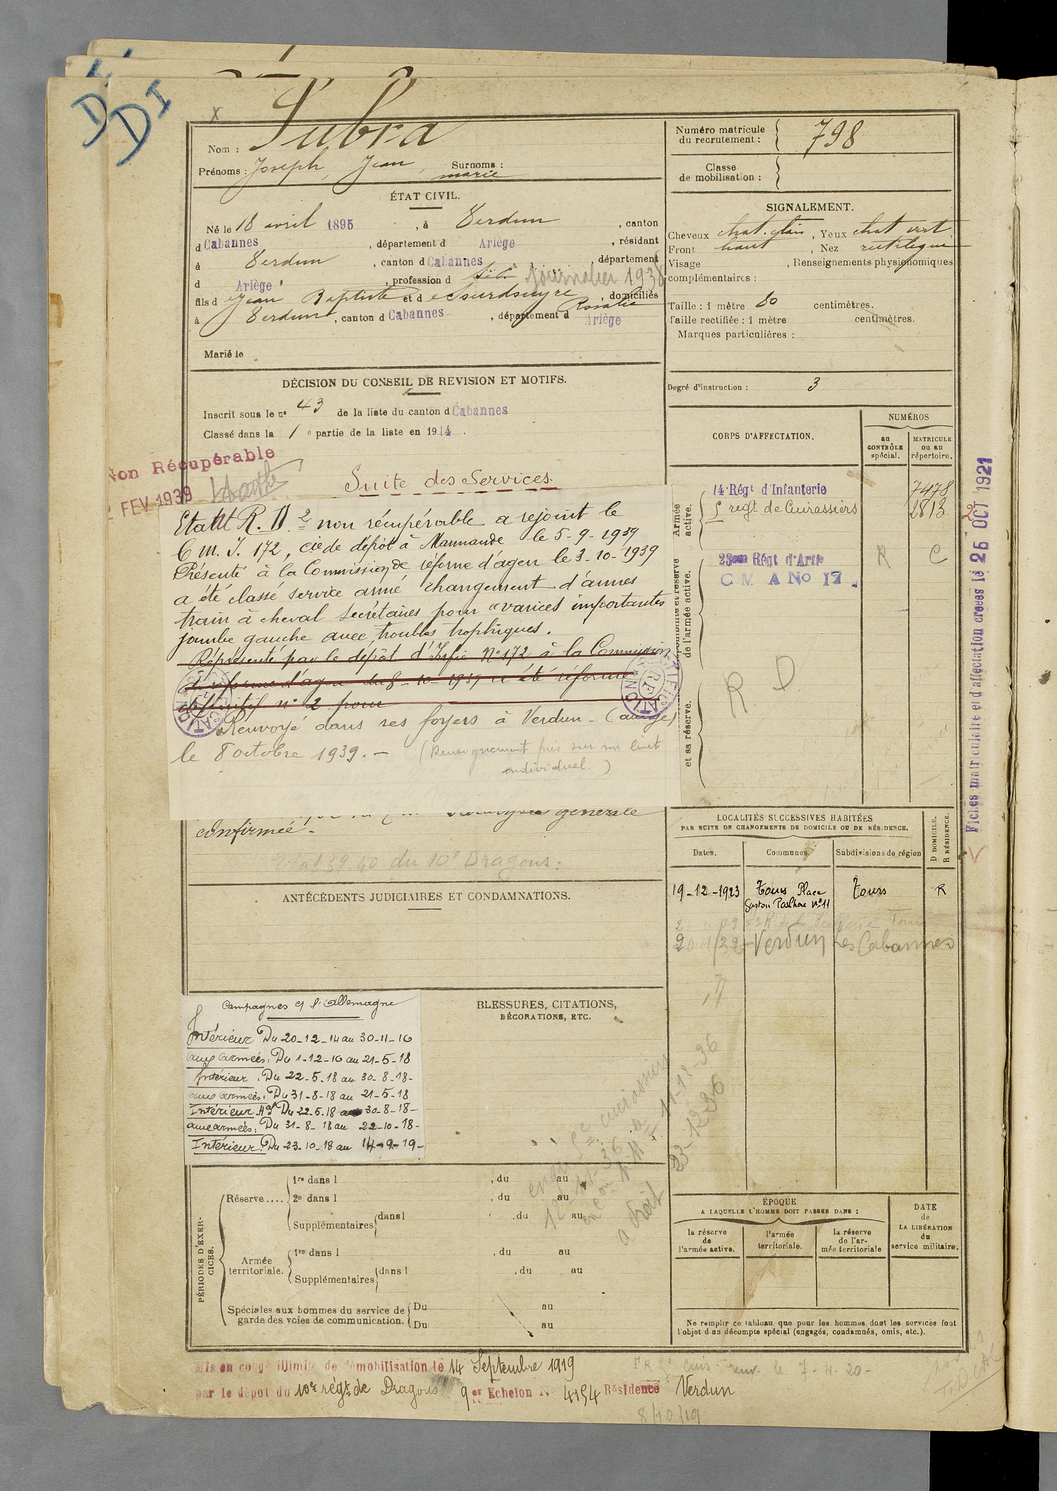 DI
DI
x
Nom : Subra
Prénoms : Joseph, Jean, marie Surnoms :
Numéro matricule du recrutement : 798
Classe de mobilisation :
ÉTAT CIVIL.
Né le 18 avril 1895, à Verdun, canton
d Cabannes, département d Ariège, résidant
à Verdun, canton d Cabannes, département
d Ariège, profession d journalier 1938
fils d Jean Baptiste et d Rosalie, domiciliés
à Verdun, canton d Cabannes, département d Ariège
Marié le
SIGNALEMENT.
Cheveux chat. clair, Yeux chat vert
Front haut, Nez rectiligne
Visage , Renseignements physionomiques
complémentaires :
Taille : 1 mètre 80 centimètres.
Taille rectifiée : 1 mètre centimètres.
Marques particulières :
Degré d'instruction : 3
DÉCISION DU CONSEIL DE REVISION ET MOTIFS.
Inscrit sous le n° 43 de la liste du canton d Cabannes
Classé dans la 1 e partie de la liste en 1914.
Non Récupérable
FEV 1939
Suite des Services
Etat R. D 2 non récupérable a rejoint le
C M. I. 172, Cie de dépôt à Marmande le 5-9-1939
Présenté à la Commission de réforme d'agen le 3-10-1939
a été classé service armé changement d'armes
train à cheval secrétaires pour "varices importantes
jambe gauche avec troubles trophiques.
Représenté par le dépôt d'Infie N° 172 à la Commission
de réforme d'agen du 5-10-1939 a été réformé
définitif n° 2 pour
Renvoyé dans ses foyers à Verdun - (ariège)
le 8 octobre 1939. - (Renseignement pris sur son livret
individuel.)
générale
confirmée -
39.40 du 10e Dragons.
CORPS D'AFFECTATION.
NUMÉROS
au CONTRÔLE spécial.
MATRICULE ou au répertoire.
Armée active.
14 Régt d'Infanterie 7478
5 régt de Cuirassiers 2813
et réserve de l'armée active.
23ème Régt d'Artie R C
C M A No 17.
et sa réserve.
R D
Fiches matriculaire et d'affectation créées le 25 OCT 1921
LOCALITÉS SUCCESSIVES HABITÉES
PAR SUITE DE CHANGEMENTS DE DOMICILE OU DE RÉSIDENCE.
Dates. Communes. Subdivisions de région
D DOMICILE. R RÉSIDENCE.
19-12-1923 Tours Place Tours R
N° 11
Verdun les Cabannes
ANTÉCÉDENTS JUDICIAIRES ET CONDAMNATIONS.
Campagnes c/ l'Allemagne
Intérieur Du 20-12-14 au 30-11-16
aux armées: Du 1-12-16 au 21-5-18
Intérieur: Du 22-5-18 au 30-8-18-
aux armées: Du 31-8-18 au 21-5-18
Intérieur Du 22-5-18 au 30-8-18-
aux armées: Du 31-8-18 au 22-10-18-
Intérieur: Du 23-10-18 au 14-9-19-
BLESSURES, CITATIONS,
DÉCORATIONS, ETC.
23-12-36
PÉRIODES D'EXERCICES.
Réserve....
1re dans l , du au
2e dans l , du au
Supplémentaires dans l , du au
Armée territoriale.
1re dans l , du au
Supplémentaires dans l , du au
Spéciales aux hommes du service de
garde des voies de communication.
Du au
Du au
ÉPOQUE
A LAQUELLE L'HOMME DOIT PASSER DANS :
la réserve de l'armée active.
l'armée territoriale.
la réserve de l'armée territoriale
DATE de LA LIBÉRATION du service militaire.
Ne remplir ce tableau que pour les hommes dont les services font
l'objet d'un décompte spécial (engagés, condamnés, omis, etc.).
Mis en congé illimité de démobilisation le 14 Septembre 1919
par le dépôt du 10e régt de Dragons 9 er Echelon N° 4154 Résidence Verdun
le 7-4-20-
8/10/19